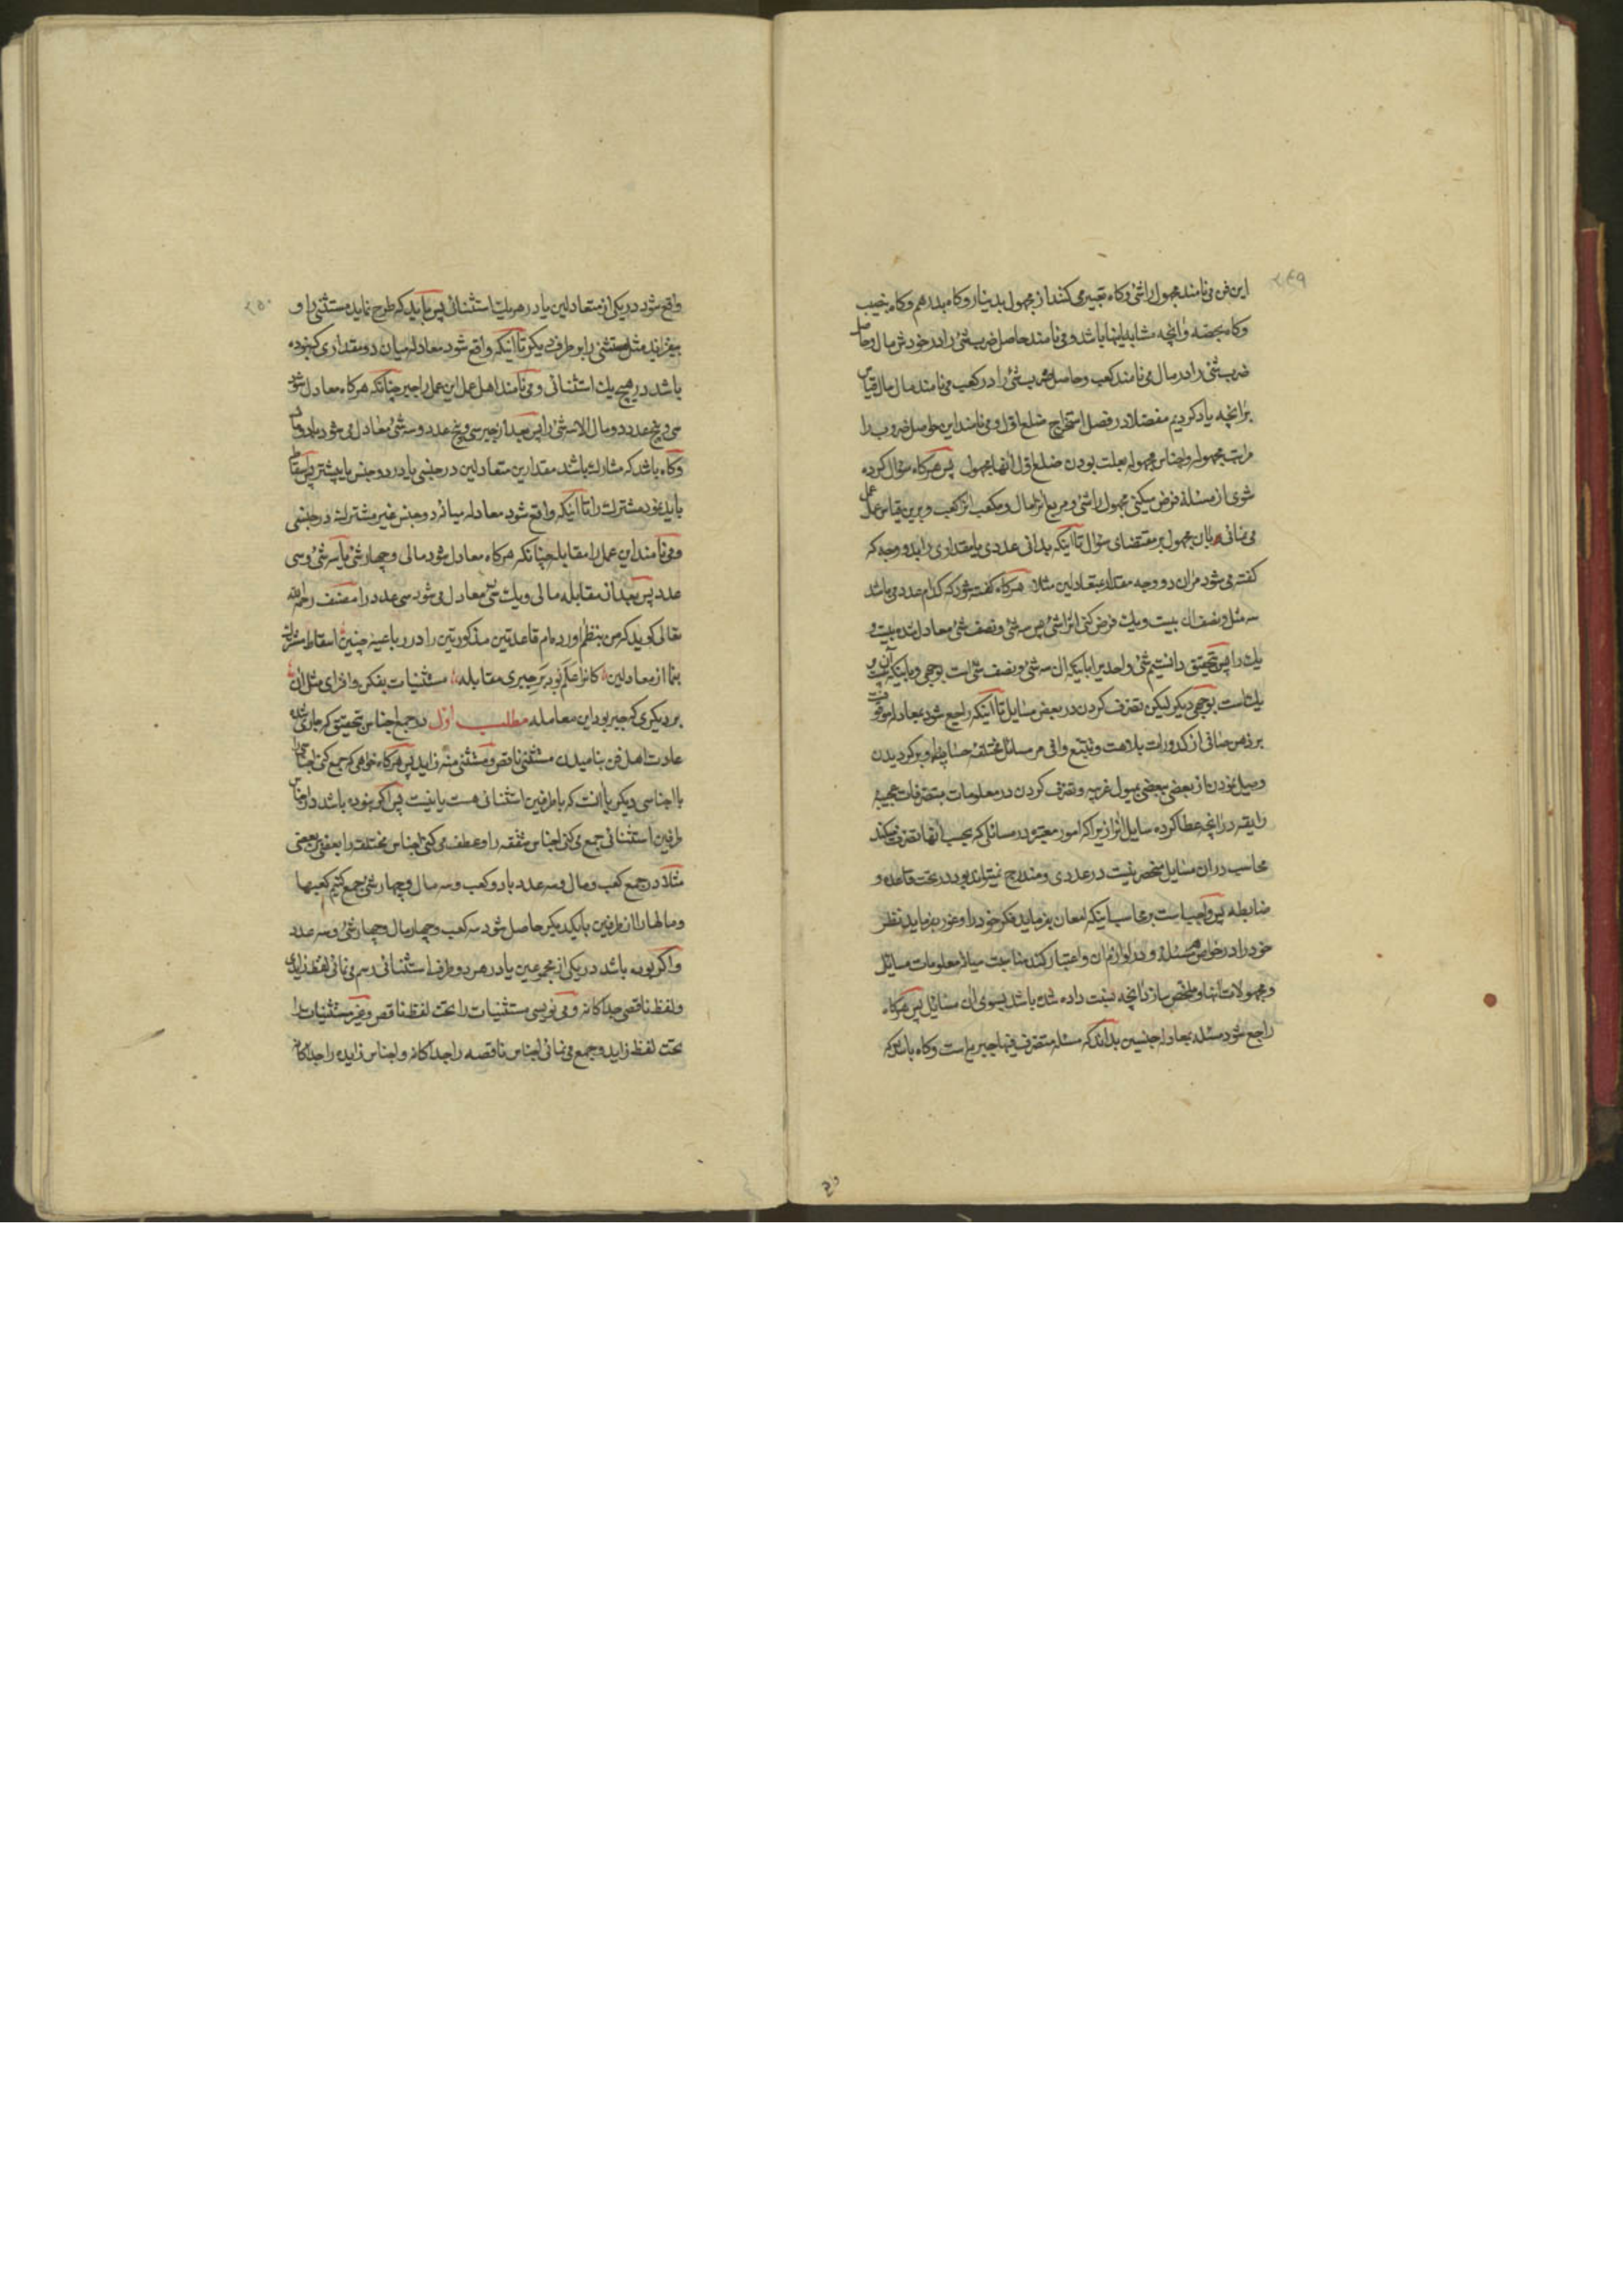 ۲۴۹
این فن می نامند مجهول را شئ و کاه تعبیر می کنند از مجهول بدینار و کاه بدرهم و کاه بنصیب
و کاه بحصه و آنچه مشابه اینها باشد و می نامند حاصل ضرب شئ را در خودش مال و حاصل
ضرب شئ را در مال می نامند کعب و حاصل ضرب شئ را در کعب می نامند مال مال قیاس
برآنچه یاد کردیم مفصلا در فصل استخراج ضلع اول و می نامند این حواصل ضروب را
مراتب مجهوله و اجناس مجهوله بعلت بودن ضلع اول آنها مجهول پس هرکاه سؤال کرده
شوی از مسئلة فرض میکنی مجهول را شئ و مربع انرا مال و مکعب انرا کعب و برین قیاس عمل
می نمائی بان مجهول بر مقتضای سؤال تا اینکه بدانی عددی یا مقداری را بدو وجه که
کفته می شود مران دو وجه مقدار متعادلین مثلا هرکاه کفته شود که کدام عدد می باشد
سه مثل و نصف ان بیست و یک فرض کنی انرا شئ پس سه شئ و نصف شئ معادل شده بیست و
یک را پس تحقیق دانستیم شئ واحد را باینکه ان سه شئ و نصف شئ است بوجهی و باینکه آن بیست و
یک است بوجهی دیکر لیکن تصرف کردن در بعض مسایل تا اینکه راجع شود بمعادله موقوفست
بر ذهن صافی از کدورات بلاهت و تتبع وافی مر مسائل مختلفه حسابیه را و برکردیدن
و میل نمودن از بعضی ببعضی بمیول غریبه و تصرف کردن در معلومات بتصرفات عجیبهٔ
رایقه در آنچه عطا کرده سایل انرا زیرا که امور معتبره در مسائلی که بحسب آنها تصرف میکند
محاسب در ان مسایل منحصر نیست در عددی و مندرج نمیتواند بود در تحت قاعده و
ضابطه پس واجب است بر محاسب اینکه امعان بفرماید فکر خود را و غور بفرماید نظر
خود را در خواص مسئله و در لوازم ان و اعتبار کند مناسبت میان معلومات مسایل
و مجهولات آنها و ملخص سازد آنچه نسبت داده شده باشد بسوی ان مسایل پس هرکاه
راجع شود مسئله بمعادله جنسین بدانکه مسئله متصرف فیها جبریه است و کاه باشد که
۲۵۰
واقع شود در یکی از متعادلین یا در هر یک استثنائی پس باید که طرح نماید مستثنی را و
بیفزاید مثل مستثنی را بر طرف دیکر تا اینکه واقع شود معادله میان دو مقداری که نبوده
باشد در هیچ یک استثنائی و می نامند اهل عمل این عمل را جبر چنانکه هرکاه معادل شود
سی و پنج عدد دو مال الا سه شئ را پس بعد از جبر سی و پنج عدد و سه شئ معادل می شود با دو مال
و کاه باشد که مشارک باشند مقدارین متعادلین در جنسی یا در دو جنس یا بیشتر پس اسقاط
باید نمود مشترک را تا اینکه واقع شود معادله میانه دو جنس غیر مشترک در جنسی
و می نامند این عمل را مقابله چنانکه هرکاه معادل شود مالی و چهار شئ با سه شئ و سی
عدد پس بعد از مقابله مالی و یک شئ معادل می شود سی عدد را مصنف رحمه الله
تعالی کوید که من بنظم آورده ام قاعدتین مذکورتین را در رباعیه چنین اسقاط مشترک
بنما از معادلین کانرا علم نود بر جبری مقابله مستثنیات بفکن و افزای مثل آن
بر دیکری که جبر بود این معامله مطلب اول در جمع اجناس تحقیق که جاری شده
عادت اهل فن بنامیدن مستثنی ناقص و مستثنی منه زاید پس هرکاه خواهی که جمع کنی اجناسی را
با اجناسی دیکر یا آنست که با طرفین استثنائی هست یا نیست پس اکر نبوده باشد در اجناس
طرفین استثنائی جمع می کنی اجناس متفقه را و عطف می کنی اجناس مختلفه را بعضی ببعضی
مثلا در جمع کعب و مال و سه عدد با دو کعب و سه مال و چهار شئ جمع کنیم کعبها
و مالها را از طرفین با یکدیکر حاصل شود سه کعب و چهار مال و چهار شئ و سه عدد
و اکر بوده باشد در یکی از مجموعین یا در هر دو طرف استثنائی رسم می نمائی لفظ زاید
و لفظ ناقص جداکانه و می نویسی مستثنیات را تحت لفظ ناقص و غیر مستثنیات را
تحت لفظ زاید و جمع می نمائی اجناس ناقصه را جداکانه و اجناس زایده را جداکانه